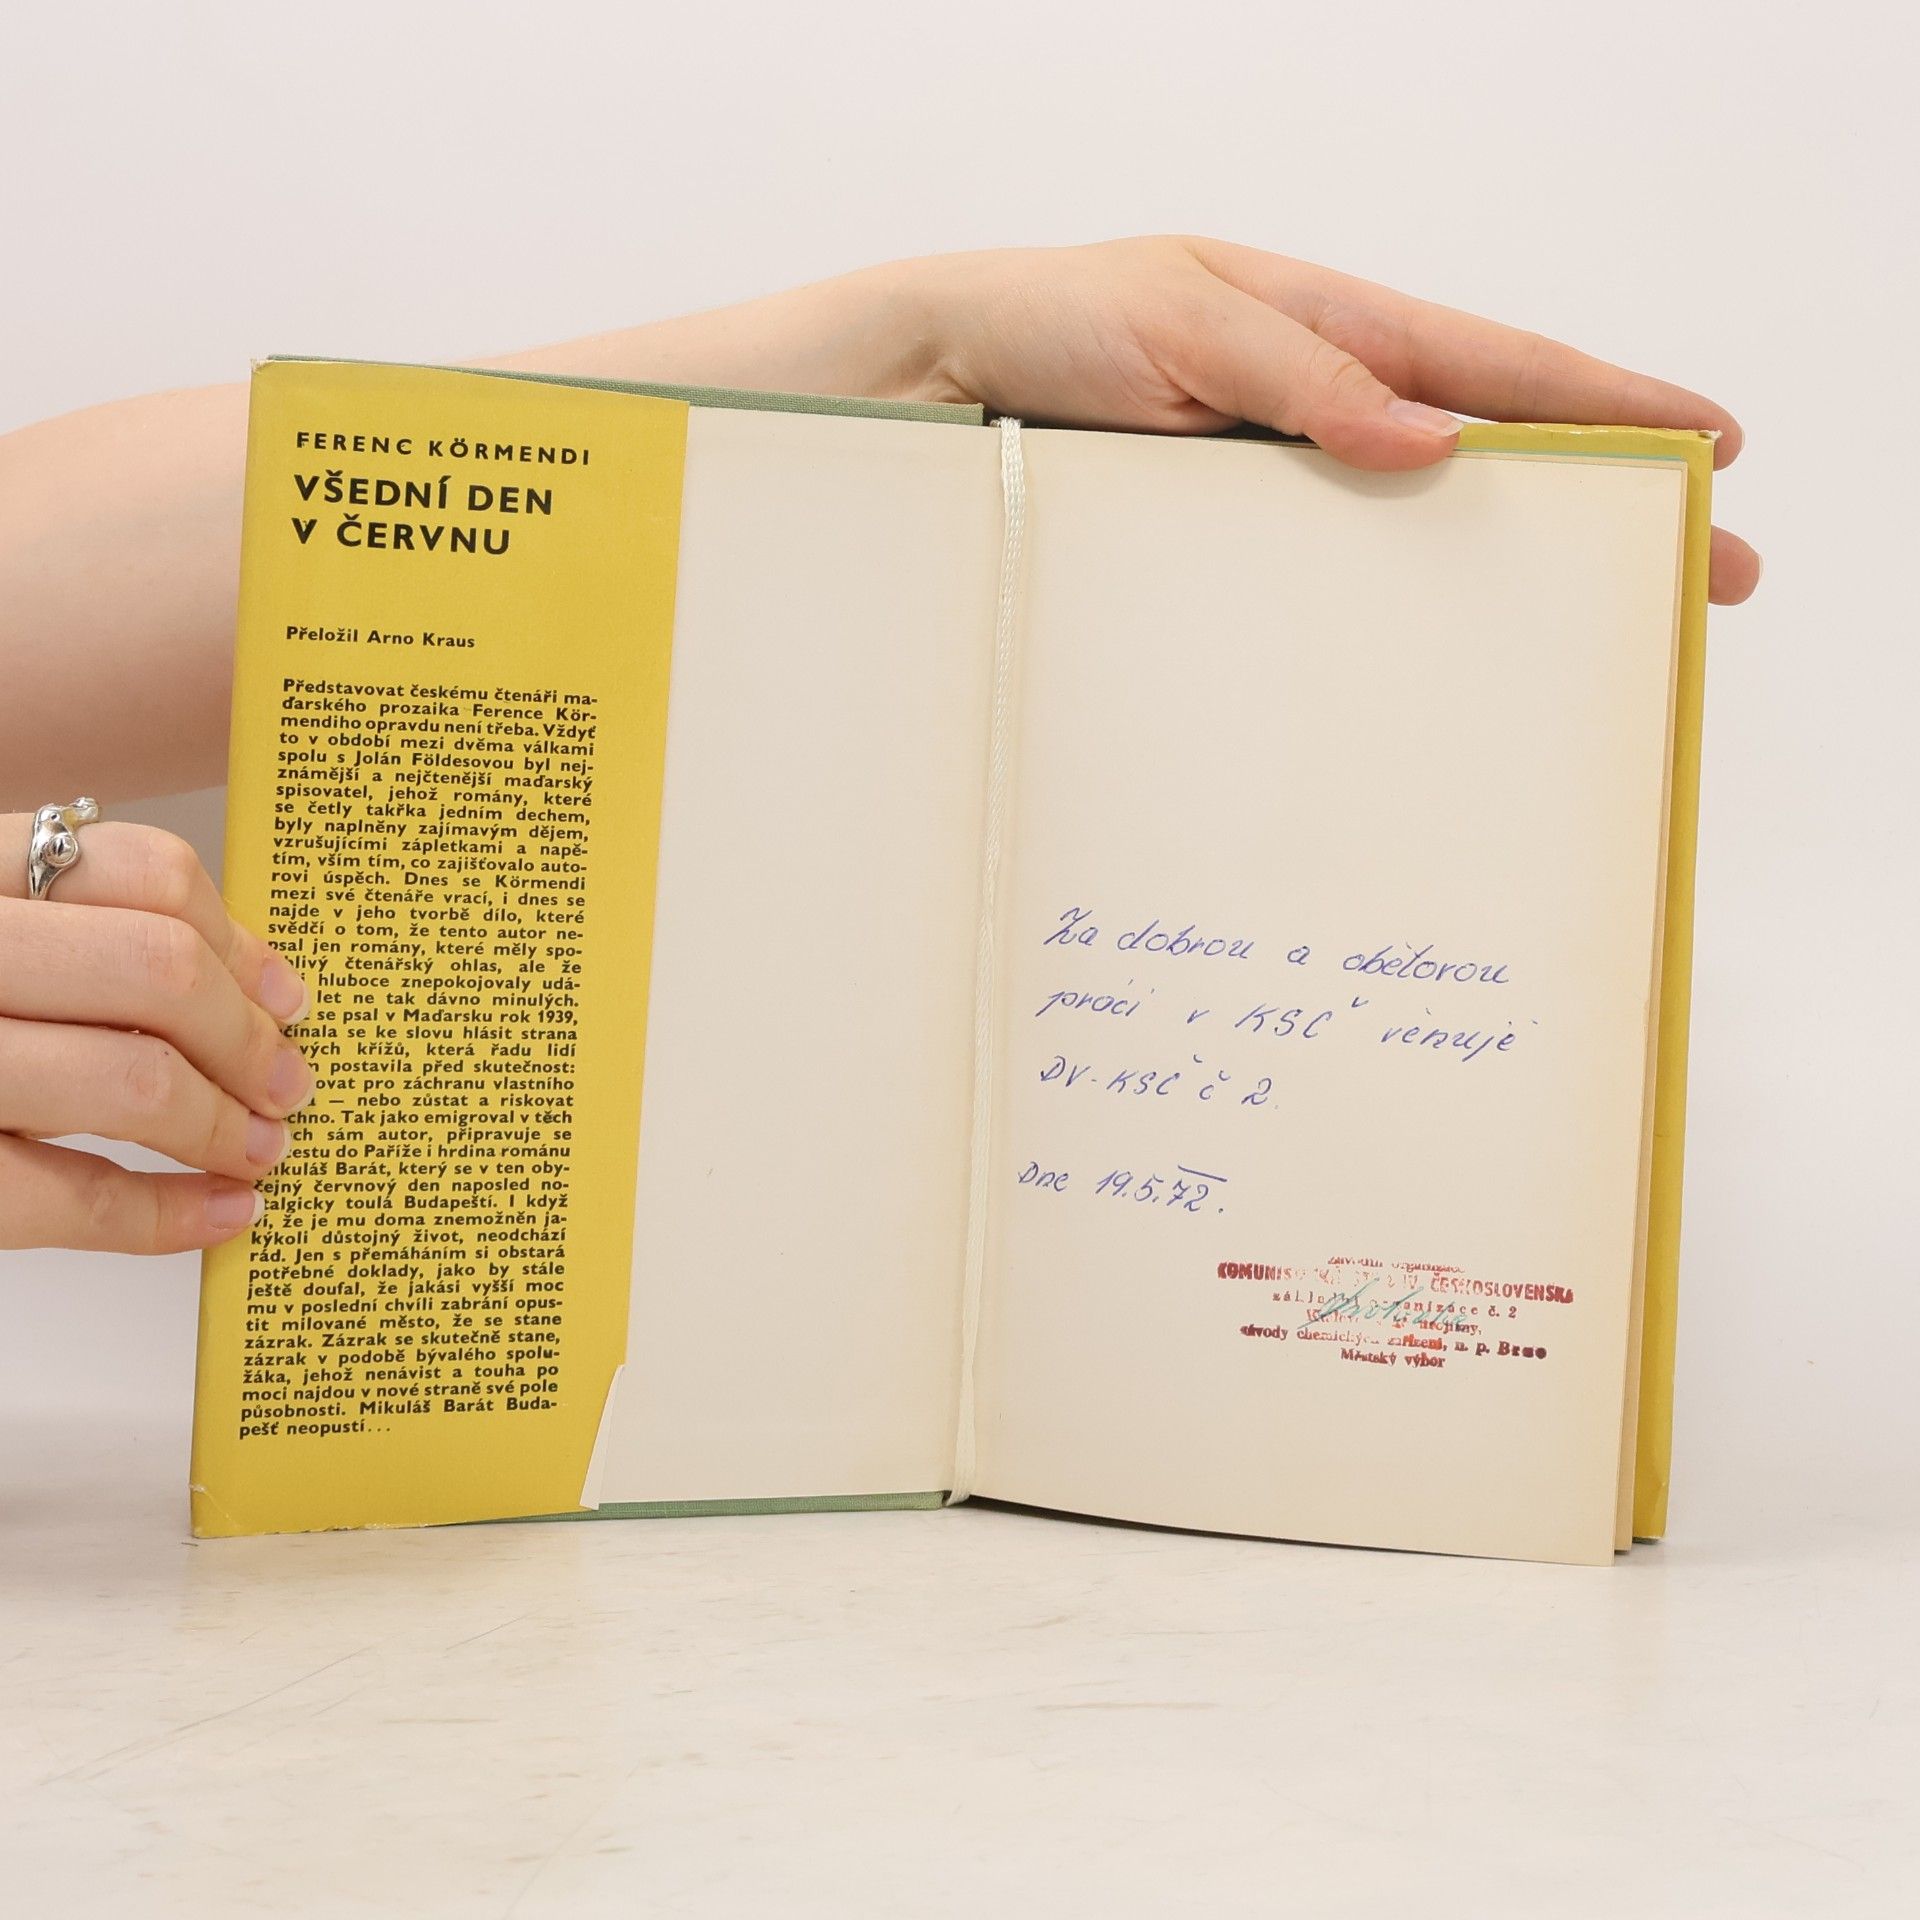 FERENC KÖRMENDI
VŠEDNÍ DEN
V ČERVNU
Přeložil Arno Kraus
Představovat českému čtenáři ma-
ďarského prozaika Ference Kör-
mendiho opravdu není třeba. Vždyť
to v období mezi dvěma válkami
spolu s Jolán Földesovou byl nej-
známější a nejčtenější maďarský
spisovatel, jehož romány, které
se četly takřka jedním dechem,
byly naplněny zajímavým dějem,
vzrušujícími zápletkami a napě-
tím, vším tím, co zajišťovalo auto-
rovi úspěch. Dnes se Körmendi
mezi své čtenáře vrací, i dnes se
najde v jeho tvorbě dílo, které
svědčí o tom, že tento autor ne-
psal jen romány, které měly spo-
hlivý čtenářský ohlas, ale že
hluboce znepokojovaly udá-
let ne tak dávno minulých.
se psal v Maďarsku rok 1939,
čínala se ke slovu hlásit strana
vých křížů, která řadu lidí
postavila před skutečnost:
ovat pro záchranu vlastního
— nebo zůstat a riskovat
chno. Tak jako emigroval v těch
ch sám autor, připravuje se
cestu do Paříže i hrdina románu
ikuláš Barát, který se v ten oby-
čejný červnový den naposled no-
talgicky toulá Budapeští. I když
ví, že je mu doma znemožněn ja-
kýkoli důstojný život, neodchází
rád. Jen s přemáháním si obstará
potřebné doklady, jako by stále
ještě doufal, že jakási vyšší moc
mu v poslední chvíli zabrání opus-
tit milované město, že se stane
zázrak. Zázrak se skutečně stane,
zázrak v podobě bývalého spolu-
žáka, jehož nenávist a touha po
moci najdou v nové straně své pole
působnosti. Mikuláš Barát Buda-
pešť neopustí...
Za dobrou a obětovou
práci v KSČ věnuje
DV-KSČ č 2.
Dne 19.5.72.
organizace
ČESKOSLOVENSKA
základní organizace č. 2
závody chemických zařízení, n. p. Brno
Městský výbor